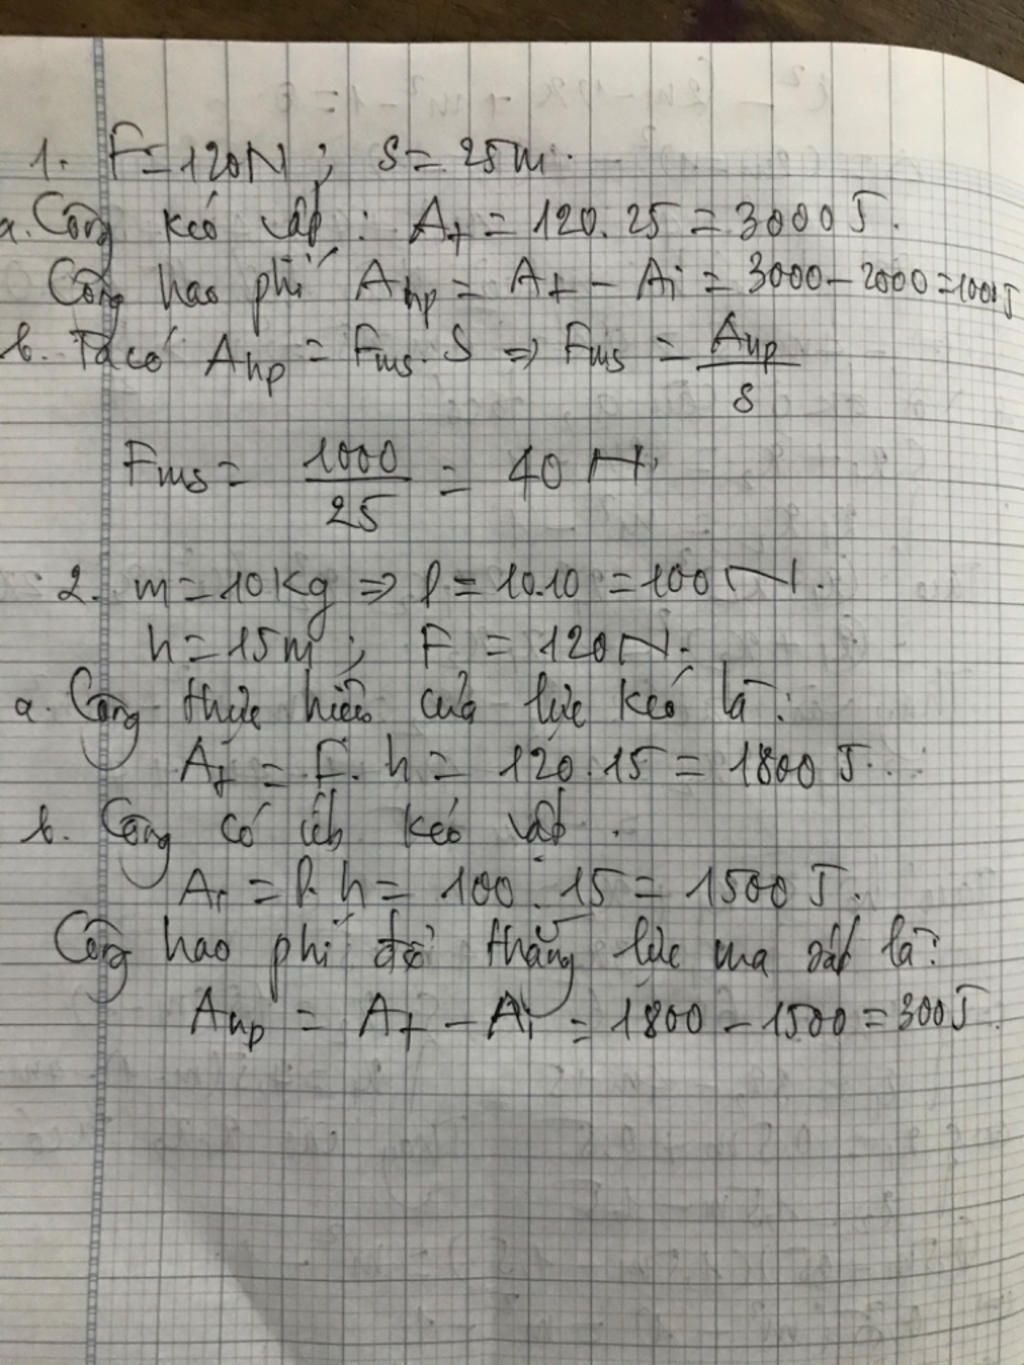 1. F = 120N ; S = 25m.
a. Công kéo vật : At = 120.25 = 3000J.
Công hao phí Ahp = At - Ai = 3000 - 2000 = 1000J
b. Ta có Ahp = Fms. S => Fms = Ahp/s
Fms = 1000/25 = 40 N.
2. m = 10kg => P = 10.10 = 100N.
h = 15m ; F = 120N.
a. Công thức hiện của lực kéo là :
At = F. h = 120.15 = 1800 J.
b. Công có ích kéo vật .
Ai = P. h = 100 . 15 = 1500 J.
Công hao phí để thắng lực ma sát là :
Ahp = At - Ai = 1800 - 1500 = 300J.